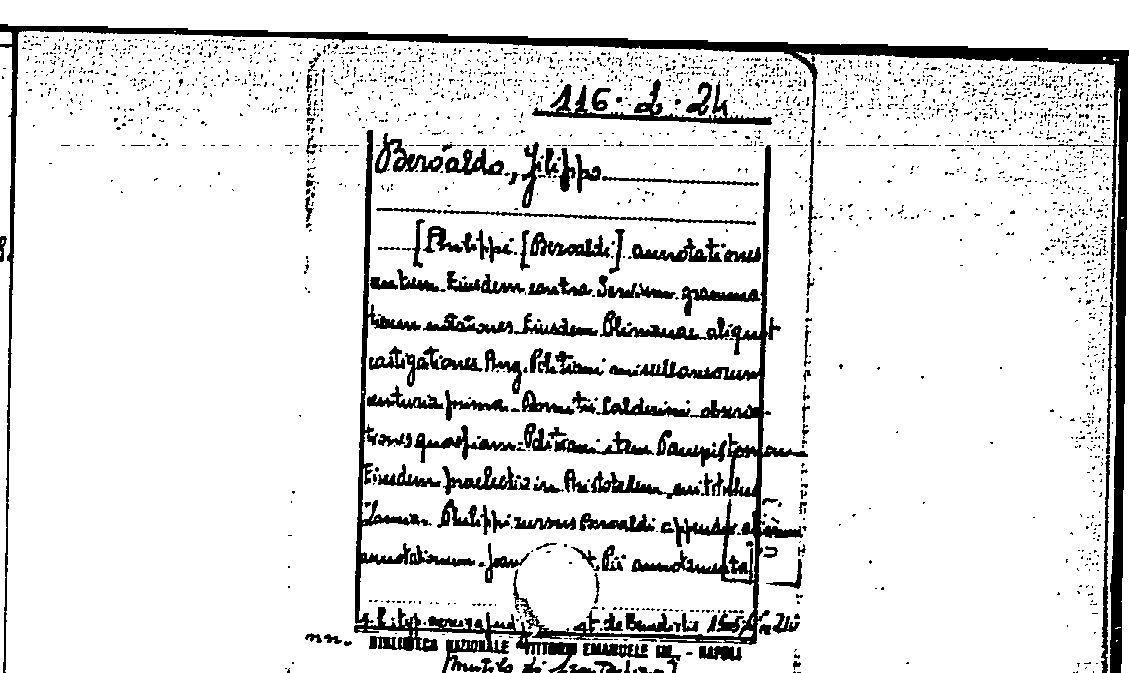 116. 2. 24
Beroaldo, Filippo
[Philippi [Beroaldi] annotationes
Eiusdem contra Servium gramma
ticum Eiusdem Plinianae aliquot
castigationes Ang. Politiani miscellaneorum
centuria prima Domitii Calderini observa-
tiones quaspiam Politiani item Panepistemon
Eiusdem praelectio in Aristotelem cui titulus
Lamia. Philippi rursus Beroaldi appendix aliarum
annotationum. Joan t. Pii annotamenta]
de Benedictis 1505
BIBLIOTECA NAZIONALE VITTORIO EMANUELE III. - NAPOLI
Mutilo di